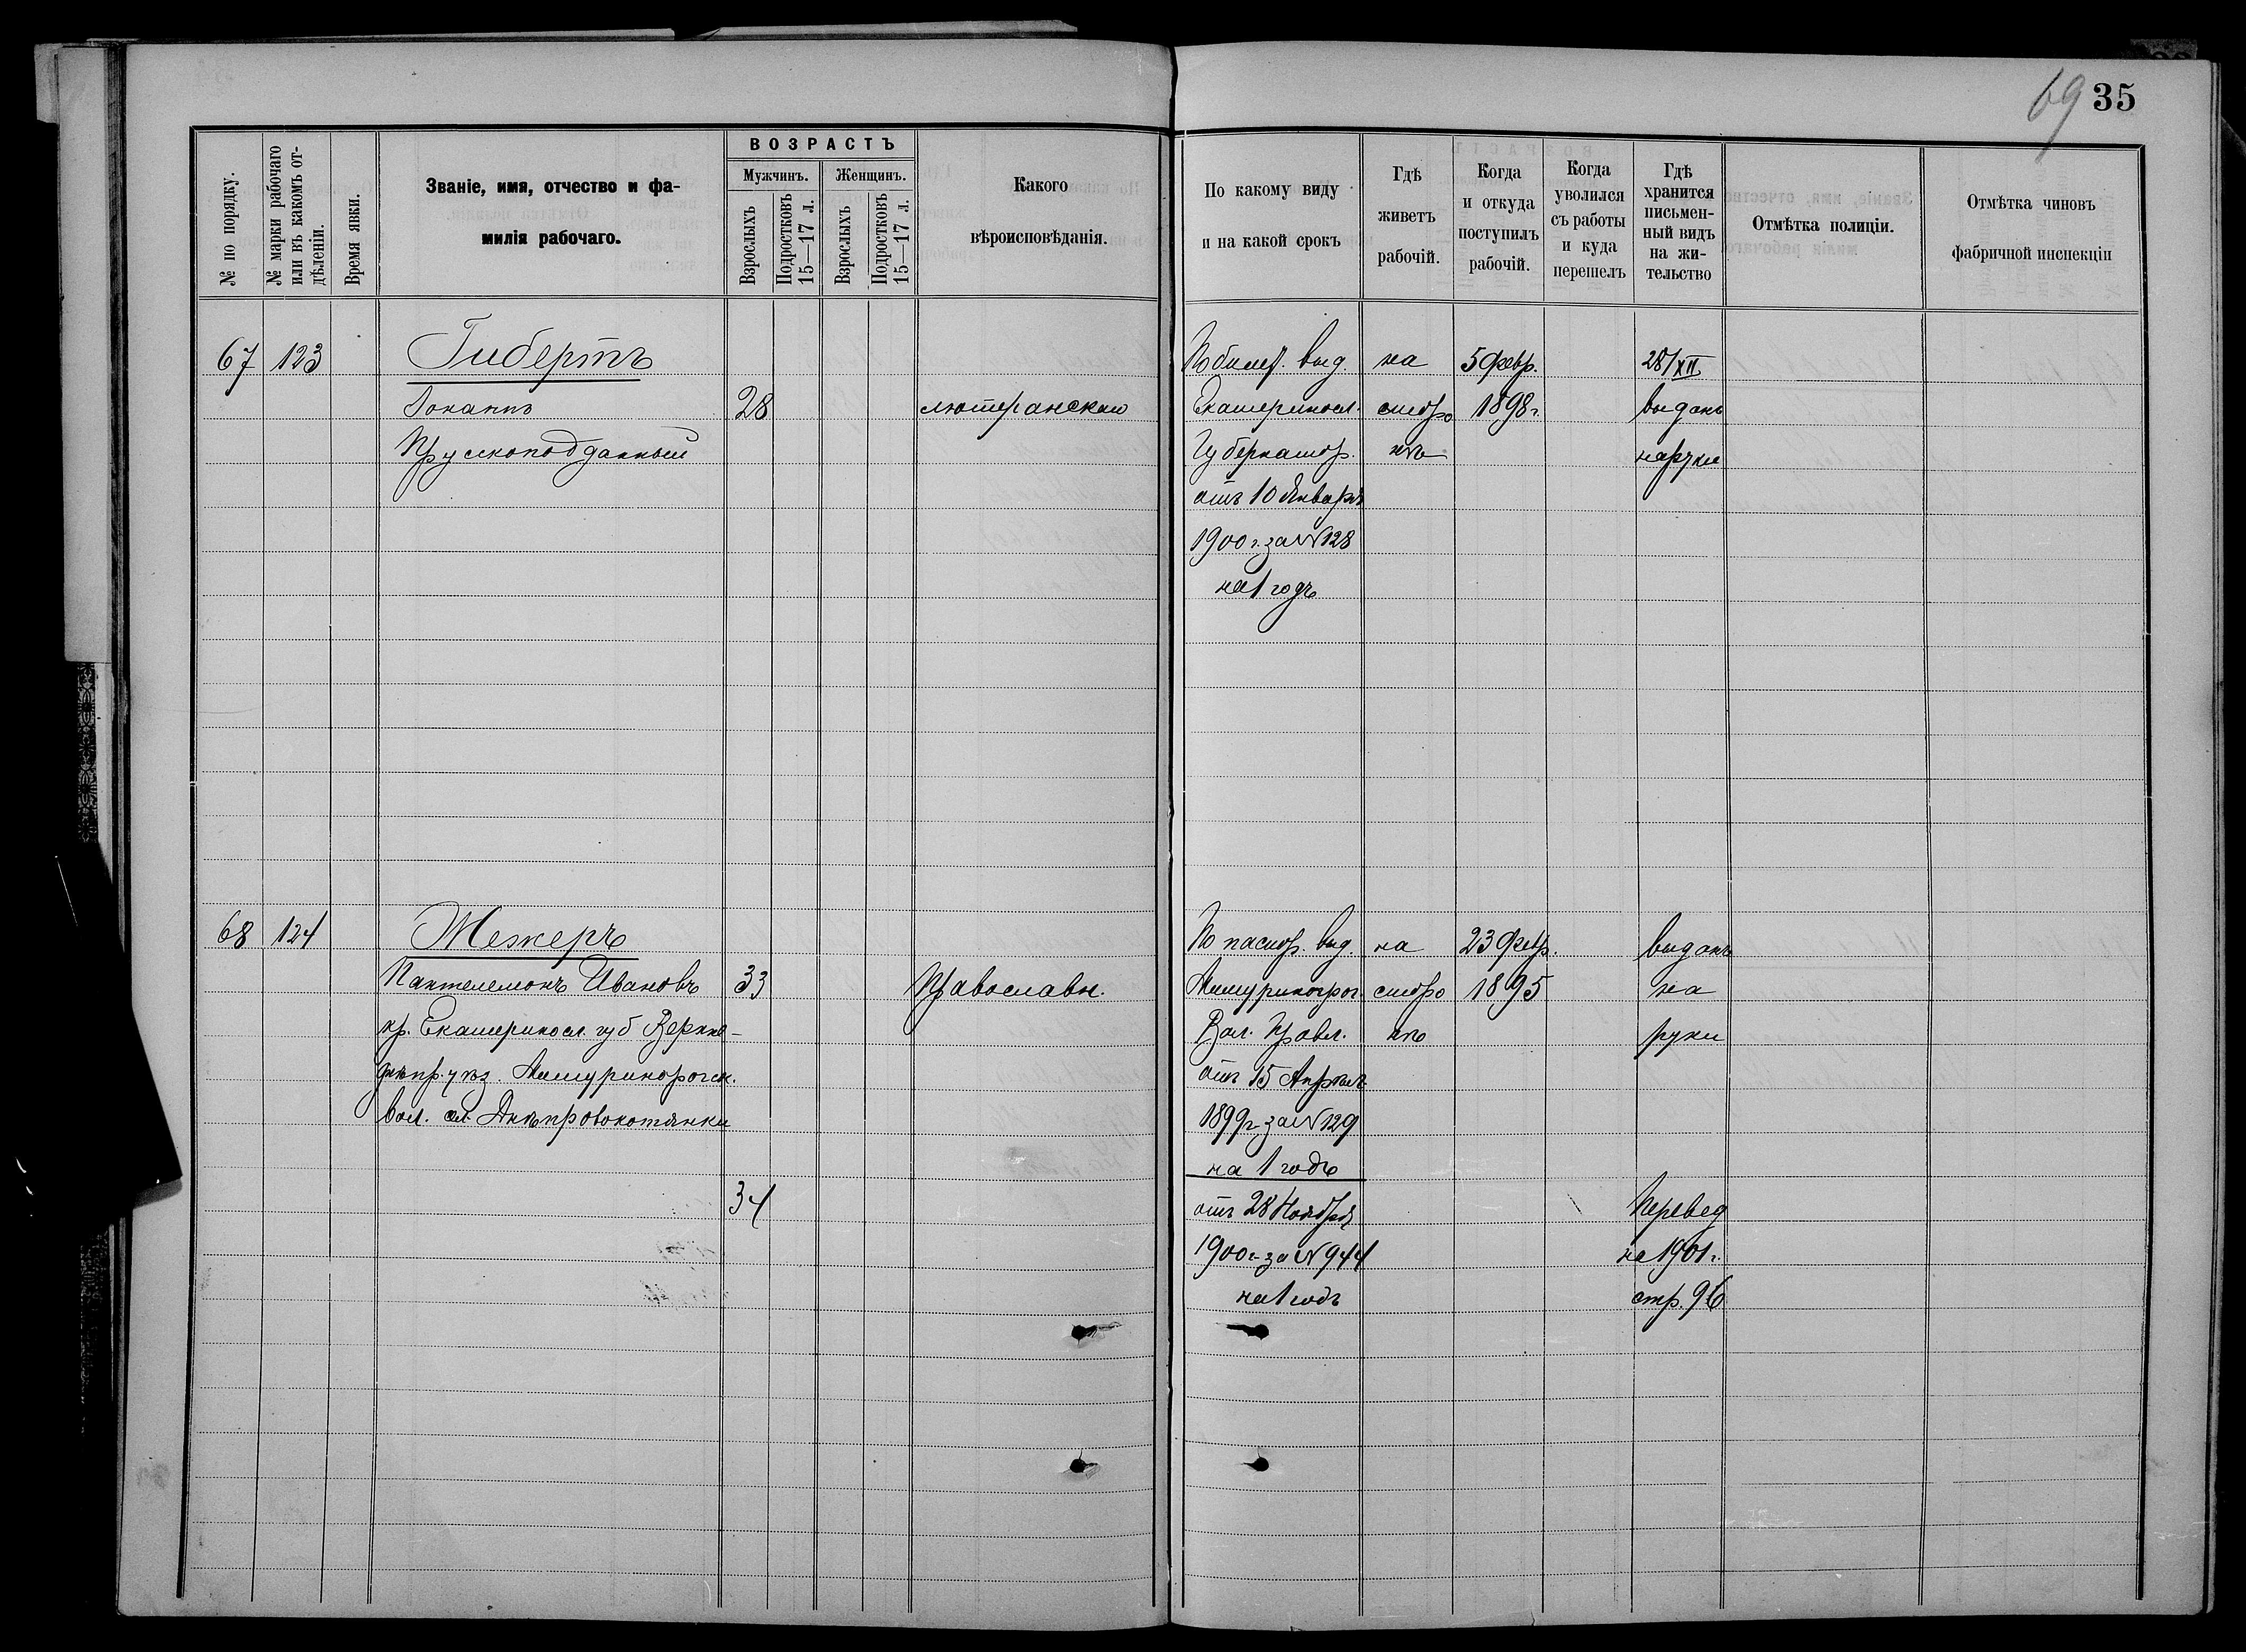 69 35
№ по порядку.
№ марки рабочаго
или въ какомъ от-
дѣленіи.
Время явки.
Званіе, имя, отчество и фа-
милія рабочаго.
ВОЗРАСТЪ
Мужчинъ.
Женщинъ.
Взрослыхъ
Подростковъ
15—17 л.
Взрослыхъ
Подростковъ
15—17 л.
Какого
вѣроисповѣданія.
По какому виду
и на какой срокъ
Гдѣ
живетъ
рабочій.
Когда
и откуда
поступилъ
рабочій.
Когда
уволился
съ работы
и куда
перешелъ
Гдѣ
хранится
письмен-
ный видъ
на жи-
тельство
Отмѣтка полиціи.
Отмѣтка чиновъ
фабричной инспекціи
67 123
Гибертъ
Іоганнъ
Прускоподданный
28
лютеранская
По билет. выд.
Екатеринosл.
Губернатор.
отъ 10 Января
1900 г. за №128
на 1 годъ
на
сторо
нѣ
5 Февр.
1898 г.
28/XII
выданъ
на руки
68 124
Межеръ
Пантелемонъ Ивановъ
кр. Екатериносл. губ Верхне-
днѣпр. уѣз. Мишуринорогск.
вол. сл. Днѣпровокотянки
33
34
Православн.
По паспор. выд.
Мишуриногрог.
Вол. Правл.
отъ 15 Апрѣля
1899 г. за №129
на 1 годъ
отъ 28 Ноября
1900 г. за №944
на 1 годъ
на
сторо
нѣ
23 Февр.
1895
выданъ
на
руки
Перевед
на 1901 г.
стр. 96